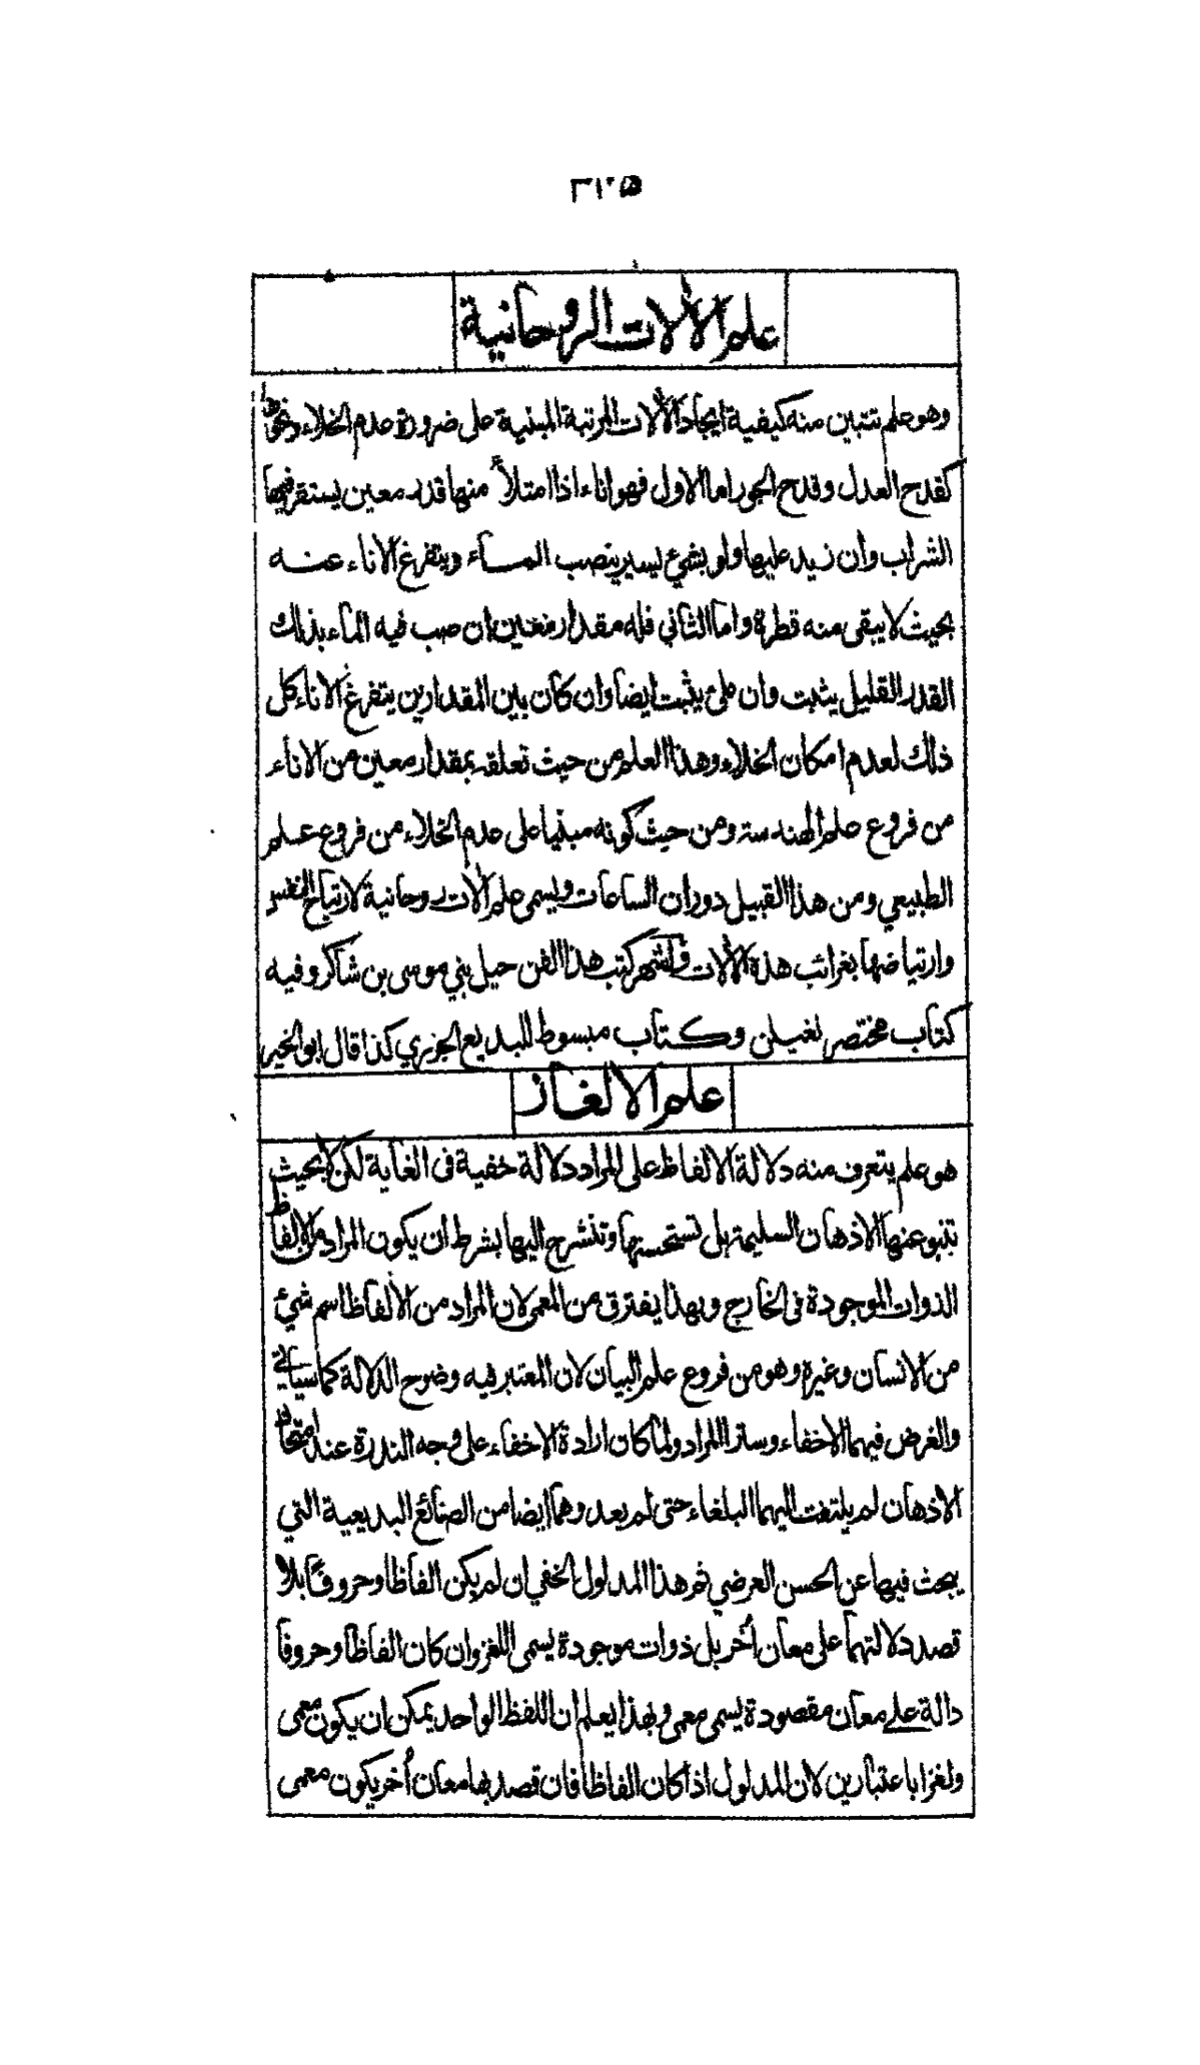 ٣١٥
علم الآلات الروحانية
وهو علم تتبين منه كيفية ايجاد الآلات المرتبة المبنية على ضرورة عدم الخلاء ونحوها
كقدح العدل وقدح الجور اما الاول فهو اناء اذا امتلأ منها قدر معين يستقر فيها
الشراب وان زيد عليها ولو بشئ يسير ينصب المآء ويتفرغ الاناء عنه
بحيث لا يبقى منه قطرة واما الثاني فله مقدار معين ان صب فيه المآء بذلك
القدر القليل يثبت وان ملئ يثبت ايضا وان كان بين المقدارين يتفرغ الاناء كل
ذلك لعدم امكان الخلاء وهذا العلم من حيث تعلقه بمقدار معين من الاناء
من فروع علم الهندسة ومن حيث كونه مبنيا على عدم الخلاء من فروع علم
الطبيعي ومن هذا القبيل دوران الساعات ويسمى علم آلات روحانية لارتياح النفس
وارتياضها بغرائب هذه الآلات واشهر كتب هذا الفن حيل بني موسى بن شاكر وفيه
كتاب مختصر لغيلن وكتاب مبسوط للبديع الجزري كذا قال ابو الخير
علم الالغاز
هو علم يتعرف منه دلالة الالفاظ على المراد دلالة خفية فى الغاية لكن لا بحيث
تنبو عنها الاذهان السليمة بل تستحسنها وتنشرح اليها بشرط ان يكون المراد من الالفاظ
الذوات الموجودة فى الخارج وبهذا يفترق من المعمى لان المراد من الالفاظ اسم شئ
من الانسان وغيره وهو من فروع علم البيان لان المعتبر فيه وضوح الدلالة كما سيأتي
والغرض فيهما الاخفاء وستر المراد ولما كان ارادة الاخفاء على وجه الندرة عند امتحان
الاذهان لم يلتفت اليهما البلغاء حتى لم يعدوهما ايضا من الصنائع البديعية التي
يبحث فيها عن الحسن العرضي ثم هذا المدلول الخفي ان لم يكن الفاظا وحروفا بلا
قصد دلالتهما على معان أخر بل ذوات موجودة يسمى اللغز وان كان الفاظا وحروفا
دالة على معان مقصودة يسمى معمى وبهذا يعلم ان اللفظ الواحد يمكن ان يكون معمى
ولغزا باعتبارين لان المدلول اذا كان الفاظا فان قصد بها معان أخر يكون معمى